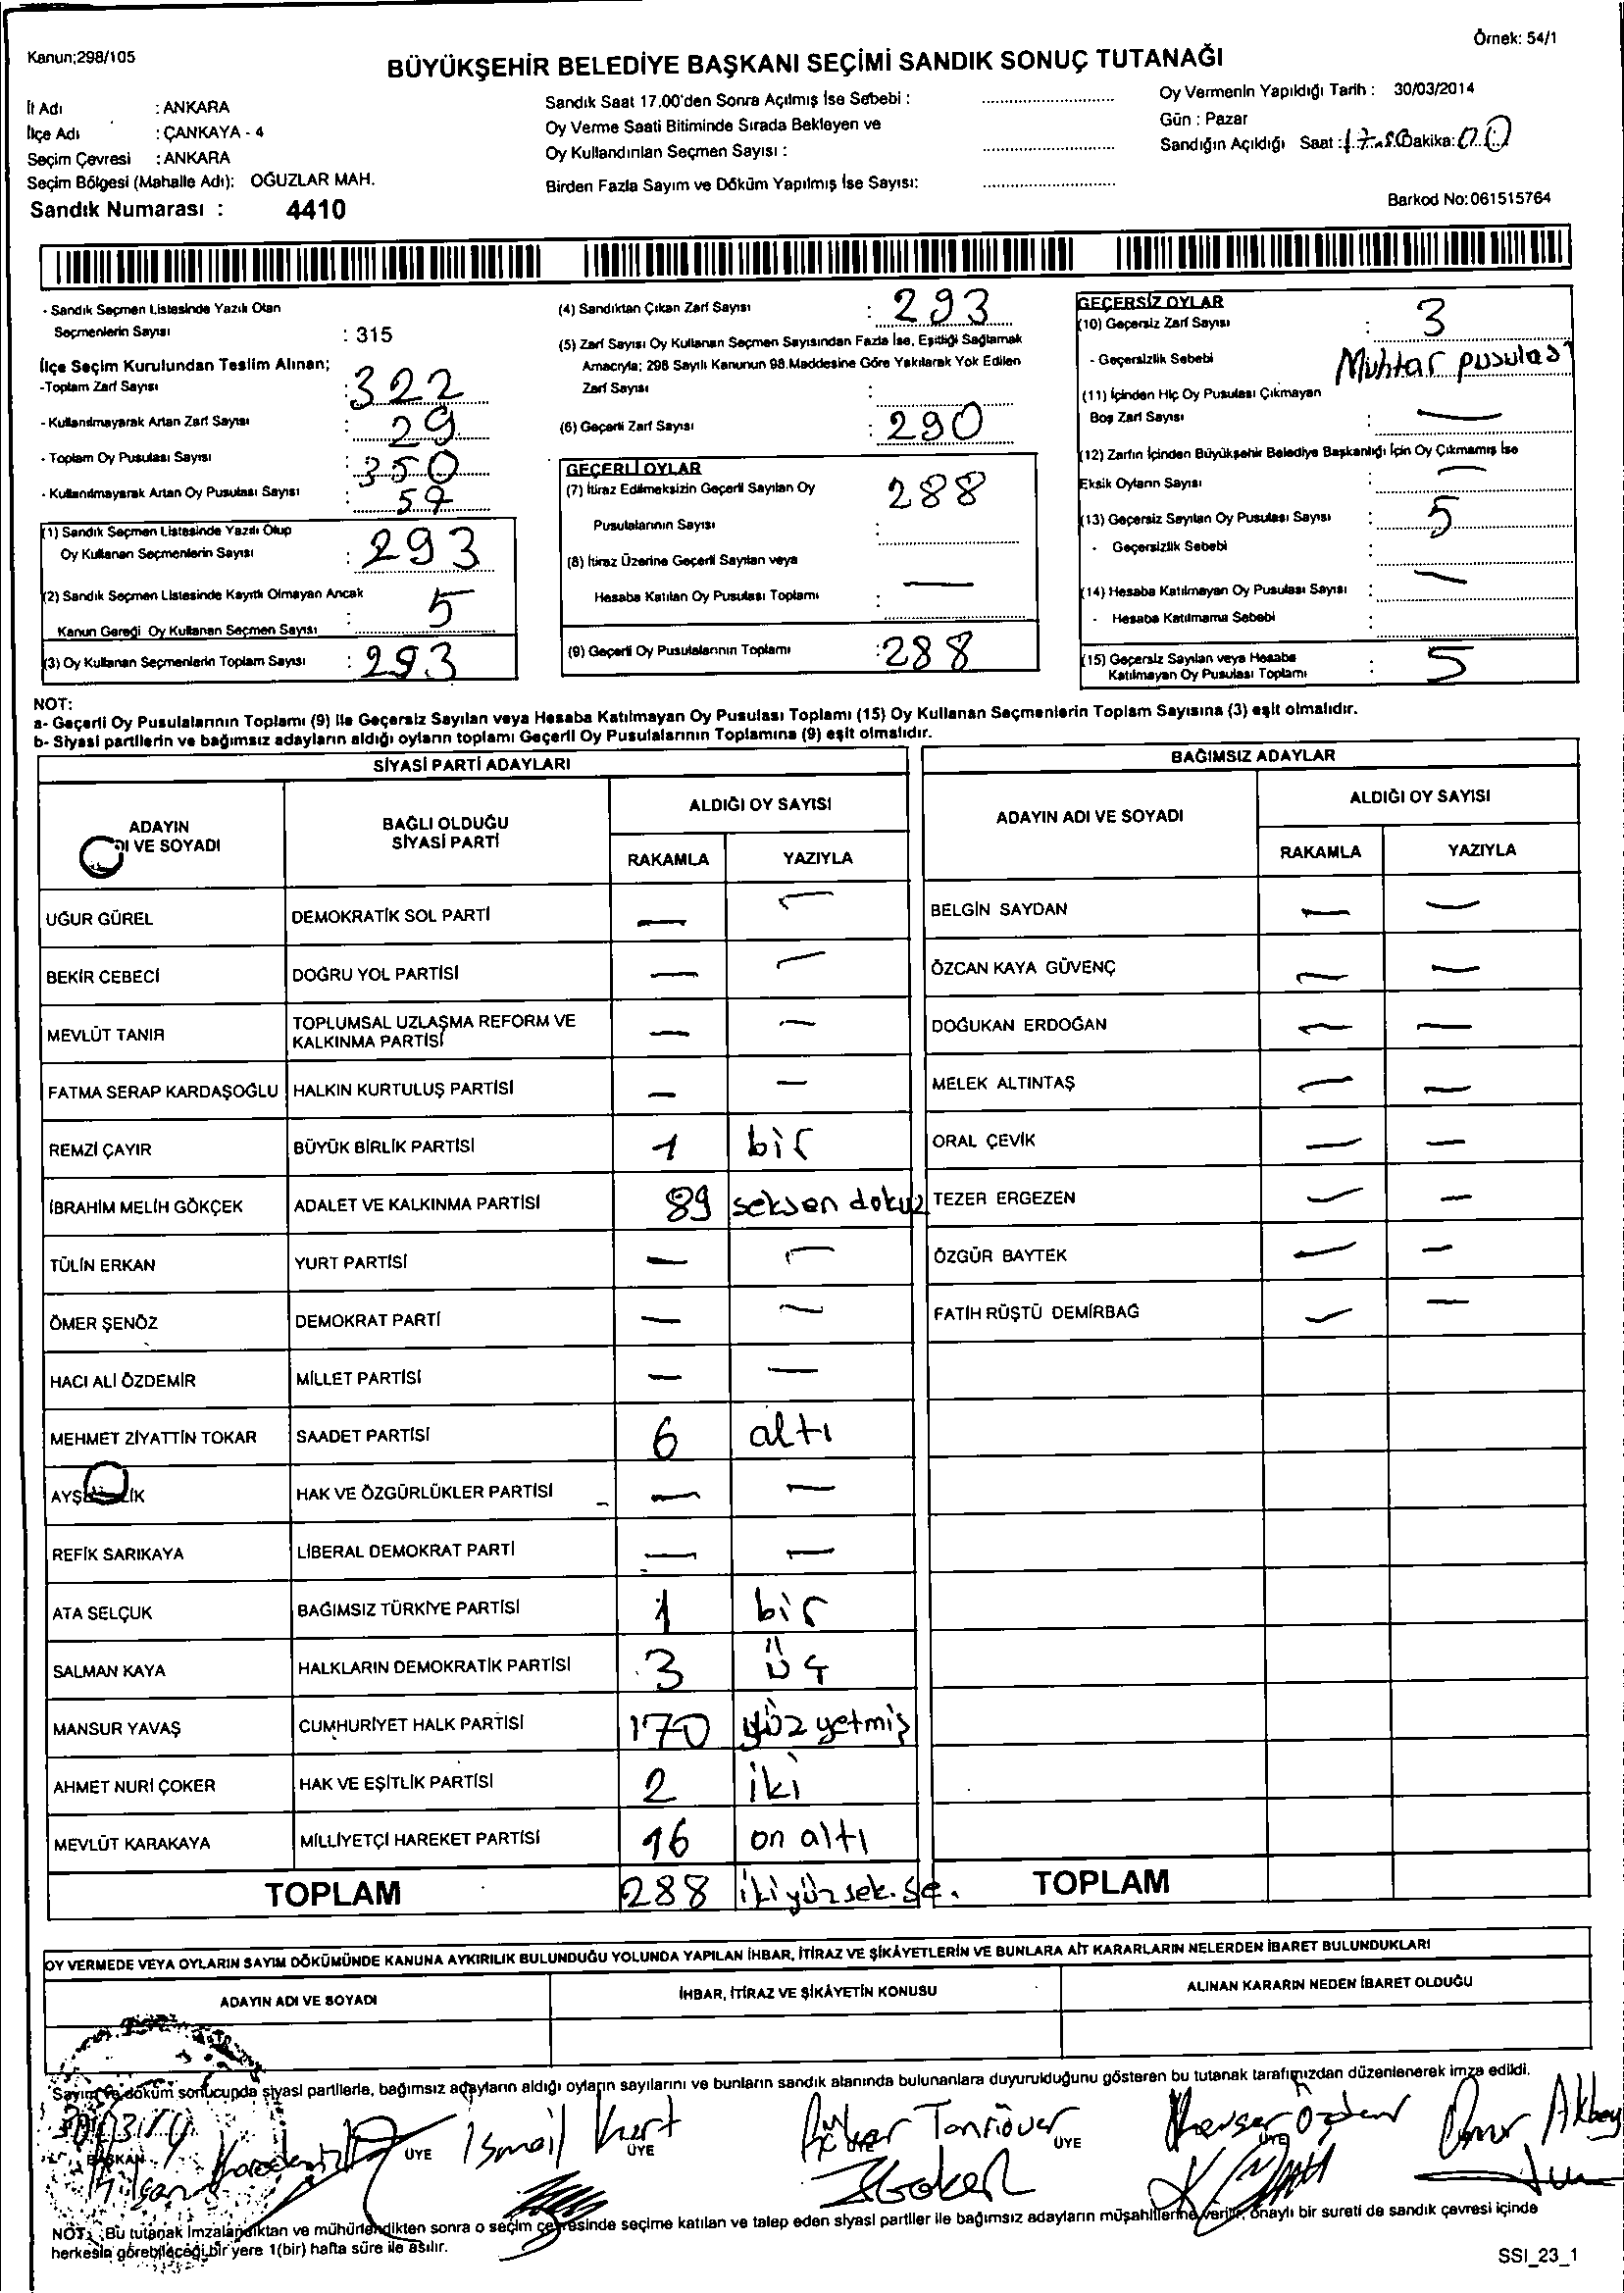 Örnek: 54/1
Kanun;298/105
BÜYÜKŞEHİR BELEDİYE BAŞKANI SEÇİMİ SANDIK SONUÇ TUTANAĞI
İl Adı : ANKARA
İlçe Adı : ÇANKAYA - 4
Seçim Çevresi : ANKARA
Seçim Bölgesi (Mahalle Adı): OĞUZLAR MAH.
Sandık Numarası : 4410
Sandık Saat 17.00'den Sonra Açılmış İse Sebebi :
Oy Verme Saati Bitiminde Sırada Bekleyen ve
Oy Kullandırılan Seçmen Sayısı :
Birden Fazla Sayım ve Döküm Yapılmış İse Sayısı:
Oy Vermenin Yapıldığı Tarih : 30/03/2014
Gün : Pazar
Sandığın Açıldığı Saat : Dakika:
Barkod No:061515764
- Sandık Seçmen Listesinde Yazılı Olan
Seçmenlerin Sayısı : 315
İlçe Seçim Kurulundan Teslim Alınan;
-Toplam Zarf Sayısı : 322
- Kullanılmayarak Artan Zarf Sayısı : 29
- Toplam Oy Pusulası Sayısı : 350
- Kullanılmayarak Artan Oy Pusulası Sayısı : 57
(1) Sandık Seçmen Listesinde Yazılı Olup
Oy Kullanan Seçmenlerin Sayısı : 293
(2) Sandık Seçmen Listesinde Kayıtlı Olmayan Ancak
Kanun Gereği Oy Kullanan Seçmen Sayısı : 5
(3) Oy Kullanan Seçmenlerin Toplam Sayısı : 293
(4) Sandıktan Çıkan Zarf Sayısı : 293
(5) Zarf Sayısı Oy Kullanan Seçmen Sayısından Fazla İse, Eşitliği Sağlamak
Amacıyla; 298 Sayılı Kanunun 98.Maddesine Göre Yakılarak Yok Edilen
Zarf Sayısı :
(6) Geçerli Zarf Sayısı : 290
GEÇERLİ OYLAR
(7) İtiraz Edilmeksizin Geçerli Sayılan Oy
Pusulalarının Sayısı : 288
(8) İtiraz Üzerine Geçerli Sayılan veya
Hesaba Katılan Oy Pusulası Toplamı : —
(9) Geçerli Oy Pusulalarının Toplamı : 288
GEÇERSİZ OYLAR
(10) Geçersiz Zarf Sayısı : 3
- Geçersizlik Sebebi Muhtar pusulası
(11) İçinden Hiç Oy Pusulası Çıkmayan
Boş Zarf Sayısı : —
(12) Zarfın İçinden Büyükşehir Belediye Başkanlığı İçin Oy Çıkmamış İse
Eksik Oyların Sayısı : —
(13) Geçersiz Sayılan Oy Pusulası Sayısı : 5
- Geçersizlik Sebebi :
(14) Hesaba Katılmayan Oy Pusulası Sayısı : —
- Hesaba Katılmama Sebebi :
(15) Geçersiz Sayılan veya Hesaba
Katılmayan Oy Pusulası Toplamı : 5
NOT:
a- Geçerli Oy Pusulalarının Toplamı (9) ile Geçersiz Sayılan veya Hesaba Katılmayan Oy Pusulası Toplamı (15) Oy Kullanan Seçmenlerin Toplam Sayısına (3) eşit olmalıdır.
b- Siyasi partilerin ve bağımsız adayların aldığı oyların toplamı Geçerli Oy Pusulalarının Toplamına (9) eşit olmalıdır.
SİYASİ PARTİ ADAYLARI
ADAYIN
VE SOYADI
BAĞLI OLDUĞU
SİYASİ PARTİ
ALDIĞI OY SAYISI
RAKAMLA YAZIYLA
UĞUR GÜREL DEMOKRATİK SOL PARTİ — —
BEKİR CEBECİ DOĞRU YOL PARTİSİ — —
MEVLÜT TANIR TOPLUMSAL UZLAŞMA REFORM VE
KALKINMA PARTİSİ — —
FATMA SERAP KARDAŞOĞLU HALKIN KURTULUŞ PARTİSİ — —
REMZİ ÇAYIR BÜYÜK BİRLİK PARTİSİ 1 bir
İBRAHİM MELİH GÖKÇEK ADALET VE KALKINMA PARTİSİ 89 seksen dokuz
TÜLİN ERKAN YURT PARTİSİ — —
ÖMER ŞENÖZ DEMOKRAT PARTİ — —
HACI ALİ ÖZDEMİR MİLLET PARTİSİ — —
MEHMET ZİYATTİN TOKAR SAADET PARTİSİ 6 altı
HAK VE ÖZGÜRLÜKLER PARTİSİ — —
REFİK SARIKAYA LİBERAL DEMOKRAT PARTİ — —
ATA SELÇUK BAĞIMSIZ TÜRKİYE PARTİSİ 1 bir
SALMAN KAYA HALKLARIN DEMOKRATİK PARTİSİ 3 üç
MANSUR YAVAŞ CUMHURİYET HALK PARTİSİ 170 yüz yetmiş
AHMET NURİ ÇOKER HAK VE EŞİTLİK PARTİSİ 2 iki
MEVLÜT KARAKAYA MİLLİYETÇİ HAREKET PARTİSİ 16 on altı
TOPLAM 288 ikiyüzsek.se.
BAĞIMSIZ ADAYLAR
ADAYIN ADI VE SOYADI
ALDIĞI OY SAYISI
RAKAMLA YAZIYLA
BELGİN SAYDAN — —
ÖZCAN KAYA GÜVENÇ — —
DOĞUKAN ERDOĞAN — —
MELEK ALTINTAŞ — —
ORAL ÇEVİK — —
TEZER ERGEZEN — —
ÖZGÜR BAYTEK — —
FATİH RÜŞTÜ DEMİRBAĞ — —
TOPLAM
OY VERMEDE VEYA OYLARIN SAYIM DÖKÜMÜNDE KANUNA AYKIRILIK BULUNDUĞU YOLUNDA YAPILAN İHBAR, İTİRAZ VE ŞİKÂYETLERİN VE BUNLARA AİT KARARLARIN NELERDEN İBARET BULUNDUKLARI
ADAYIN ADI VE SOYADI İHBAR, İTİRAZ VE ŞİKÂYETİN KONUSU ALINAN KARARIN NEDEN İBARET OLDUĞU
Sayım ve döküm sonucunda siyasi partilerle, bağımsız adayların aldığı oyların sayılarını ve bunların sandık alanında bulunanlara duyurulduğunu gösteren bu tutanak tarafımızdan düzenlenerek imza edildi.
İsmail Kurt Tanrıöver Akbay
BAŞKAN ÜYE ÜYE ÜYE ÜYE
NOT: Bu tutanak imzalandıktan ve mühürlendikten sonra o seçim çevresinde seçime katılan ve talep eden siyasi partiler ile bağımsız adayların müşahitlerine verilir, onaylı bir sureti de sandık çevresi içinde
herkesin görebileceği bir yere 1(bir) hafta süre ile asılır.
SSI_23_1